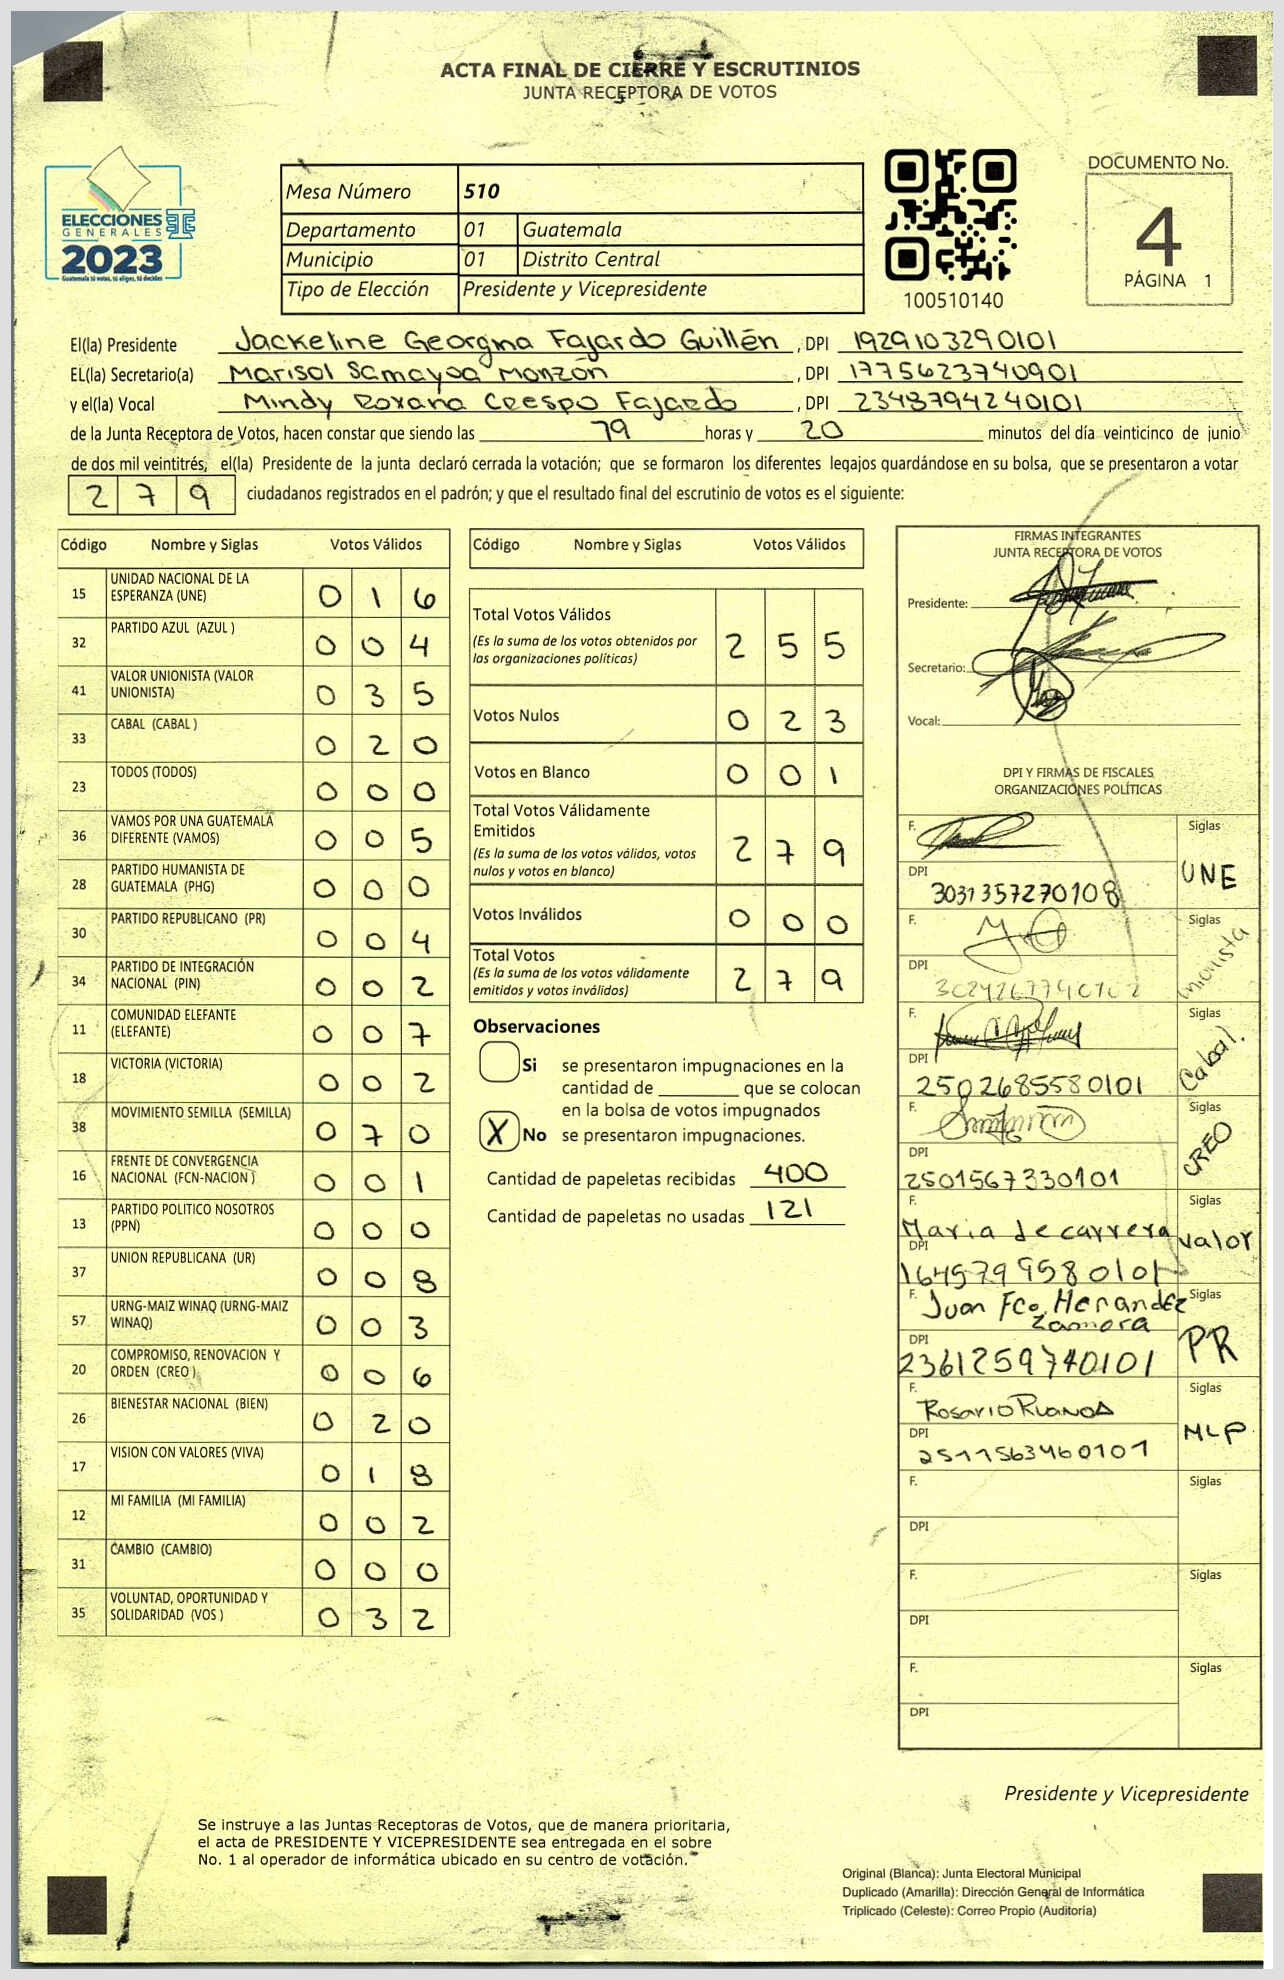 ACTA FINAL DE CIERRE Y ESCRUTINIOS
JUNTA RECEPTORA DE VOTOS
ELECCIONES
GENERALES
2023
Guatemala tú votas, tú eliges, tú decides
Mesa Número 510
Departamento 01 Guatemala
Municipio 01 Distrito Central
Tipo de Elección Presidente y Vicepresidente
100510140
DOCUMENTO No.
4
PÁGINA 1
El(la) Presidente Jackeline Georgina Fajardo Guillén , DPI 1929103290101
EL(la) Secretario(a) Marisol Samayoa Monzón , DPI 1775623740901
y el(la) Vocal Mindy Roxana Crespo Fajardo , DPI 2348794240101
de la Junta Receptora de Votos, hacen constar que siendo las 19 horas y 20 minutos del día veinticinco de junio
de dos mil veintitrés, el(la) Presidente de la junta declaró cerrada la votación; que se formaron los diferentes legajos guardándose en su bolsa, que se presentaron a votar
2 7 9 ciudadanos registrados en el padrón; y que el resultado final del escrutinio de votos es el siguiente:
Código Nombre y Siglas Votos Válidos
15 UNIDAD NACIONAL DE LA ESPERANZA (UNE) 0 1 6
32 PARTIDO AZUL (AZUL ) 0 0 4
41 VALOR UNIONISTA (VALOR UNIONISTA) 0 3 5
33 CABAL (CABAL ) 0 2 0
23 TODOS (TODOS) 0 0 0
36 VAMOS POR UNA GUATEMALA DIFERENTE (VAMOS) 0 0 5
28 PARTIDO HUMANISTA DE GUATEMALA (PHG) 0 0 0
30 PARTIDO REPUBLICANO (PR) 0 0 4
34 PARTIDO DE INTEGRACIÓN NACIONAL (PIN) 0 0 2
11 COMUNIDAD ELEFANTE (ELEFANTE) 0 0 7
18 VICTORIA (VICTORIA) 0 0 2
38 MOVIMIENTO SEMILLA (SEMILLA) 0 7 0
16 FRENTE DE CONVERGENCIA NACIONAL (FCN-NACION ) 0 0 1
13 PARTIDO POLITICO NOSOTROS (PPN) 0 0 0
37 UNION REPUBLICANA (UR) 0 0 8
57 URNG-MAIZ WINAQ (URNG-MAIZ WINAQ) 0 0 3
20 COMPROMISO, RENOVACION Y ORDEN (CREO ) 0 0 6
26 BIENESTAR NACIONAL (BIEN) 0 2 0
17 VISION CON VALORES (VIVA) 0 1 8
12 MI FAMILIA (MI FAMILIA) 0 0 2
31 CAMBIO (CAMBIO) 0 0 0
35 VOLUNTAD, OPORTUNIDAD Y SOLIDARIDAD (VOS ) 0 3 2
Código Nombre y Siglas Votos Válidos
Total Votos Válidos 2 5 5
(Es la suma de los votos obtenidos por
las organizaciones políticas)
Votos Nulos 0 2 3
Votos en Blanco 0 0 1
Total Votos Válidamente
Emitidos 2 7 9
(Es la suma de los votos válidos, votos
nulos y votos en blanco)
Votos Inválidos 0 0 0
Total Votos 2 7 9
(Es la suma de los votos válidamente
emitidos y votos inválidos)
Observaciones
Si se presentaron impugnaciones en la
cantidad de ________ que se colocan
en la bolsa de votos impugnados
X No se presentaron impugnaciones.
Cantidad de papeletas recibidas 400
Cantidad de papeletas no usadas 121
FIRMAS INTEGRANTES
JUNTA RECEPTORA DE VOTOS
Presidente:
Secretario:
Vocal:
DPI Y FIRMAS DE FISCALES
ORGANIZACIONES POLÍTICAS
F. Siglas
DPI 3031357270108 UNE
F. Siglas
DPI
F. Siglas
DPI 2502685580101 Cabal.
F. Siglas
DPI 2501567330101 CREO
F. Maria de carrera Siglas
DPI 1645799580101 Valor
F. Juan Fco. Hernandez Zamora Siglas
DPI 2361259740101 PR
F. Rosario Ruanos Siglas
DPI 2511563460101 MLP
F. Siglas
DPI
F. Siglas
DPI
F. Siglas
DPI
Presidente y Vicepresidente
Se instruye a las Juntas Receptoras de Votos, que de manera prioritaria,
el acta de PRESIDENTE Y VICEPRESIDENTE sea entregada en el sobre
No. 1 al operador de informática ubicado en su centro de votación.
Original (Blanca): Junta Electoral Municipal
Duplicado (Amarilla): Dirección General de Informática
Triplicado (Celeste): Correo Propio (Auditoría)